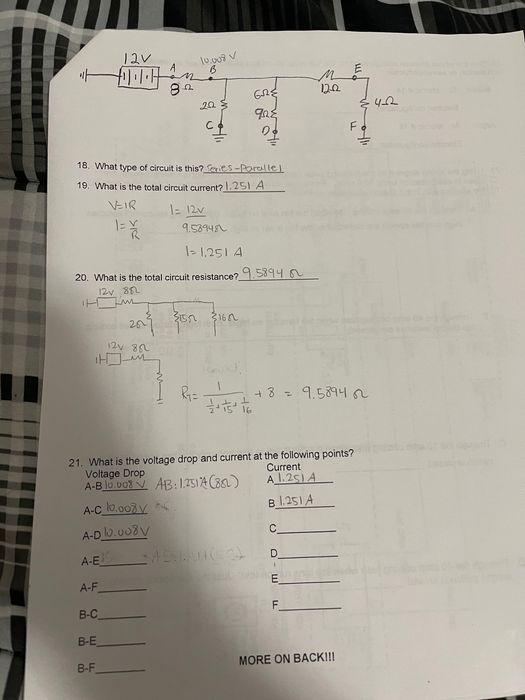 12V
A
10.008 V
B
8Ω
2Ω
C
6Ω
9Ω
D
12Ω
E
4Ω
F
18. What type of circuit is this? Series-Parallel
19. What is the total circuit current? 1.251 A
V=IR
I= V/R
I= 12V
9.5894Ω
I= 1.251 A
20. What is the total circuit resistance? 9.5894 Ω
12V 8Ω
2Ω 15Ω 16Ω
12V 8Ω
RT= 1 / (1/2 + 1/15 + 1/16) + 8 = 9.5894 Ω
21. What is the voltage drop and current at the following points?
Voltage Drop Current
A-B 10.008 V AB: 1.251A(8Ω) A 1.251 A
A-C 10.008V B 1.251 A
A-D 10.008V C
A-E D
A-F E
B-C F
B-E
B-F
MORE ON BACK!!!